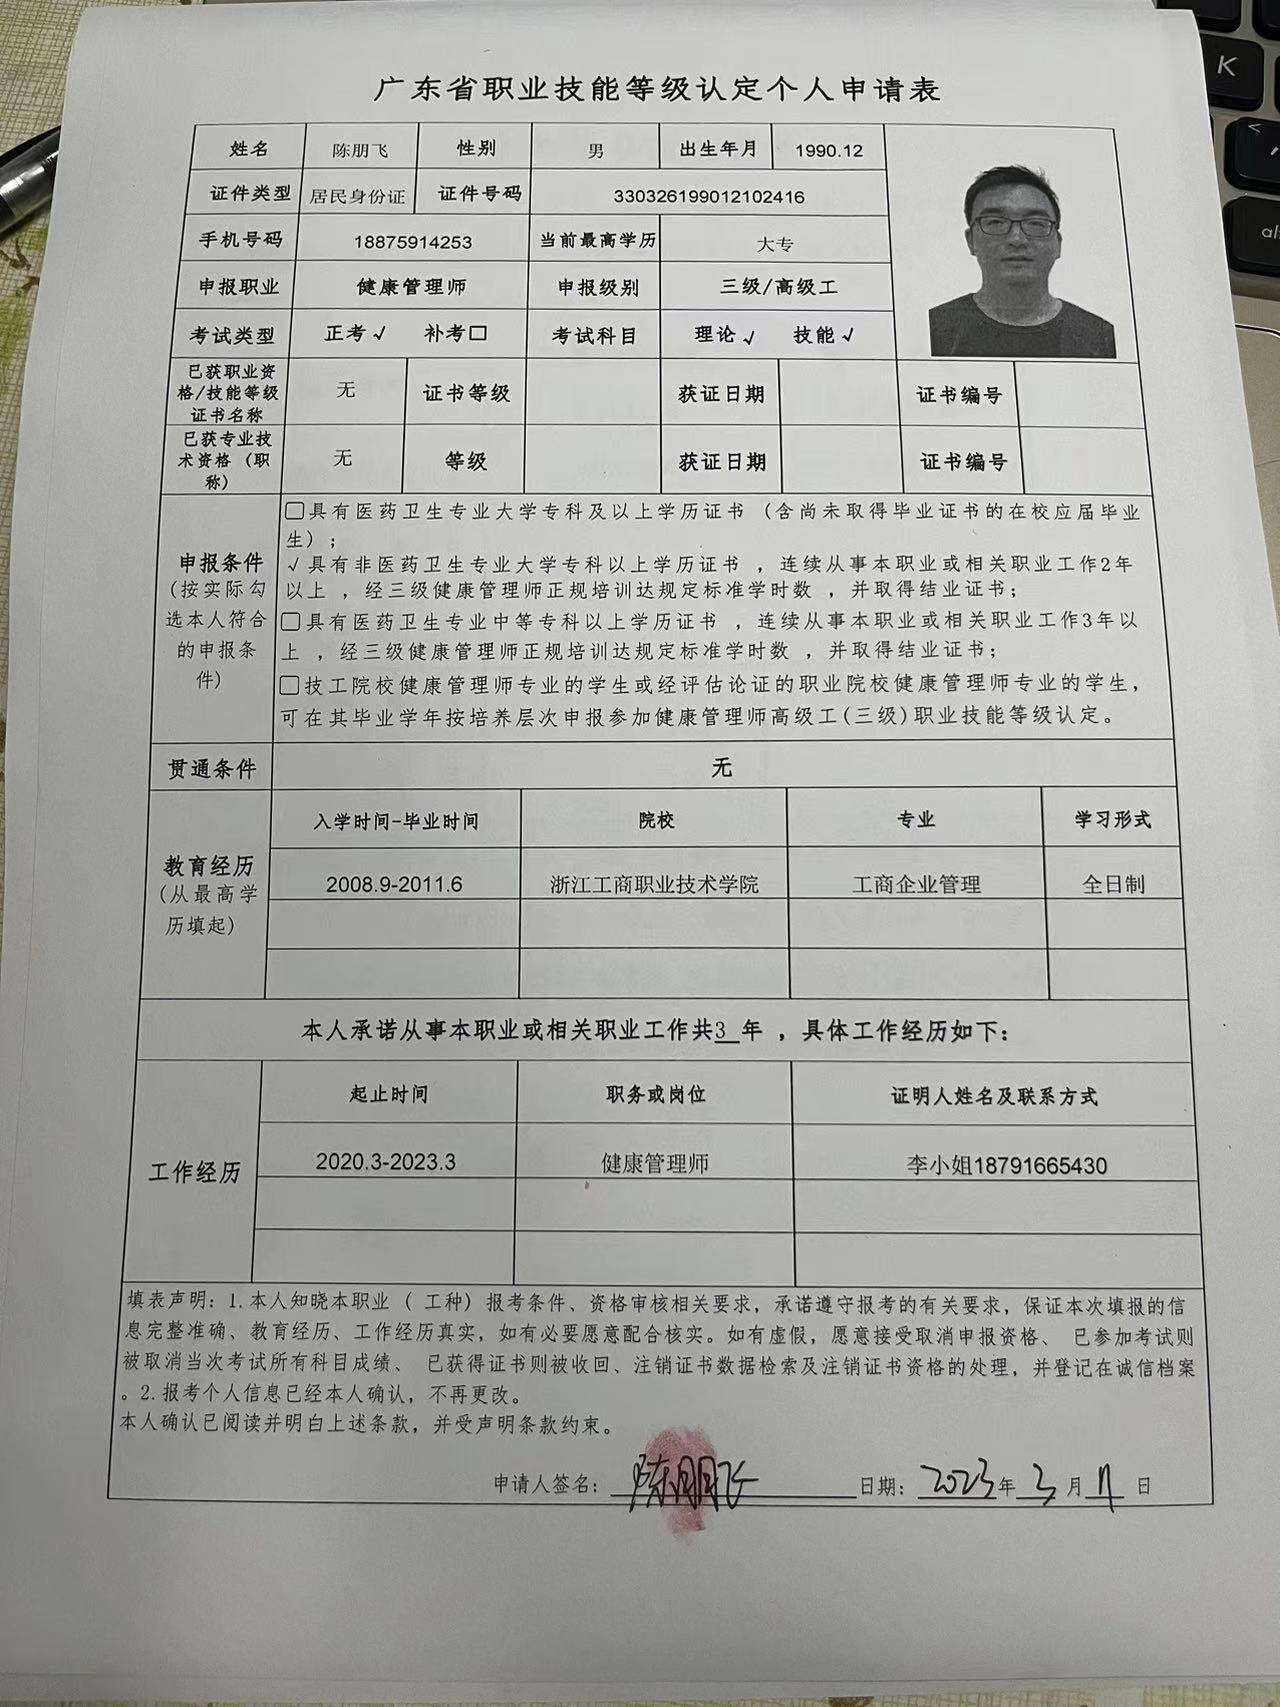 广东省职业技能等级认定个人申请表
姓名 陈朋飞 性别 男 出生年月 1990.12
证件类型 居民身份证 证件号码 330326199012102416
手机号码 18875914253 当前最高学历 大专
申报职业 健康管理师 申报级别 三级/高级工
考试类型 正考√ 补考□ 考试科目 理论√ 技能√
已获职业资格/技能等级证书名称 无 证书等级 获证日期 证书编号
已获专业技术资格（职称） 无 等级 获证日期 证书编号
申报条件
(按实际勾选本人符合的申报条件)
□具有医药卫生专业大学专科及以上学历证书（含尚未取得毕业证书的在校应届毕业
生）；
√具有非医药卫生专业大学专科以上学历证书，连续从事本职业或相关职业工作2年
以上，经三级健康管理师正规培训达规定标准学时数，并取得结业证书；
□具有医药卫生专业中等专科以上学历证书，连续从事本职业或相关职业工作3年以
上，经三级健康管理师正规培训达规定标准学时数，并取得结业证书；
□技工院校健康管理师专业的学生或经评估论证的职业院校健康管理师专业的学生，
可在其毕业学年按培养层次申报参加健康管理师高级工(三级)职业技能等级认定。
贯通条件 无
教育经历
(从最高学历填起)
入学时间-毕业时间 院校 专业 学习形式
2008.9-2011.6 浙江工商职业技术学院 工商企业管理 全日制
本人承诺从事本职业或相关职业工作共3年，具体工作经历如下：
工作经历
起止时间 职务或岗位 证明人姓名及联系方式
2020.3-2023.3 健康管理师 李小姐18791665430
填表声明：1.本人知晓本职业（工种）报考条件、资格审核相关要求，承诺遵守报考的有关要求，保证本次填报的信
息完整准确、教育经历、工作经历真实，如有必要愿意配合核实。如有虚假，愿意接受取消申报资格、已参加考试则
被取消当次考试所有科目成绩、已获得证书则被收回、注销证书数据检索及注销证书资格的处理，并登记在诚信档案
。2.报考个人信息已经本人确认，不再更改。
本人确认已阅读并明白上述条款，并受声明条款约束。
申请人签名：陈朋飞 日期：2023年3月11日
K
alt